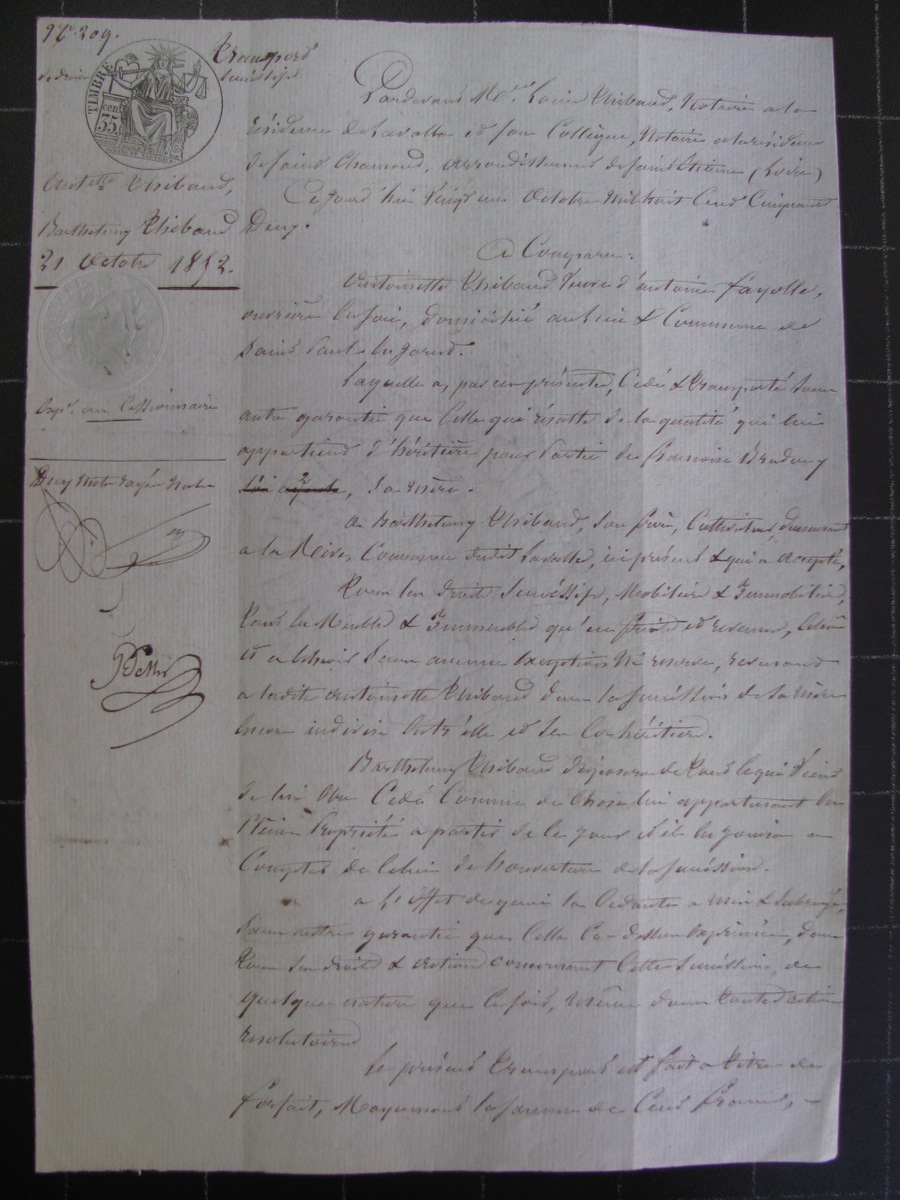 N° 209.
Transport
de droits successifs
TIMBRE
35 cen
Antte Thibaud,
Barthelemy Thibaud
21 Octobre 1852.
Expn. au Cessionnaire
Deux mots rayés nuls
Pardevant Me Louis Thibaud, Notaire a la
résidence de Lavalla et son Collègue, Notaire a la résidence
de saint Chamond, arrondissement de saint Etienne (Loire)
Cejourd'hui vingt un octobre mil huit Cent Cinquante
Deux.
A Comparu:
Antoinette Thibaud Veuve d'antoine fayolle,
ouvrière en soie, domiciliée au lieu & Commune de
saint Paul en Jarret.
Laquelle a, par ces présentes, Cédé & transporté sans
autre garantie que Celle qui résulte de la qualité qui lui
appartient d'héritière pour partie de francoise
, sa mère.
a Barthelemy Thibaud, son frère, Cultivateur, demeurant
a la Rive, Commune dudit Lavalla, ici présent & qui a accepté,
Tous les droits successifs, Mobiliers & Immobiliers,
tant en Meubles & Immeubles qu'en fruits et revenus, échus
et a échoir sans aucune exception ni réserve, revenant
a ladite antoinette Thibaud dans la succession de sa mère
encore indivise entr'elle et ses Cohéritiers.
Barthelemy Thibaud disposera de tout ce qui vient
de lui être Cédé Comme de Chose lui appartenant en
pleine propriété a partir de ce jour et il en jouira a
Compter de celui de l'ouverture de la succession.
a l'effet de quoi la Cédante a mis & subrogé,
sans autre garantie que Celle Ci-dessus exprimée, dans
tous ses droits & actions concernant Cette succession, de
quelque nature que ce soit, même dans toutes actions
résolutoires
Le présent transport est fait a titre de
forfait, Moyennant la somme de Cent francs,